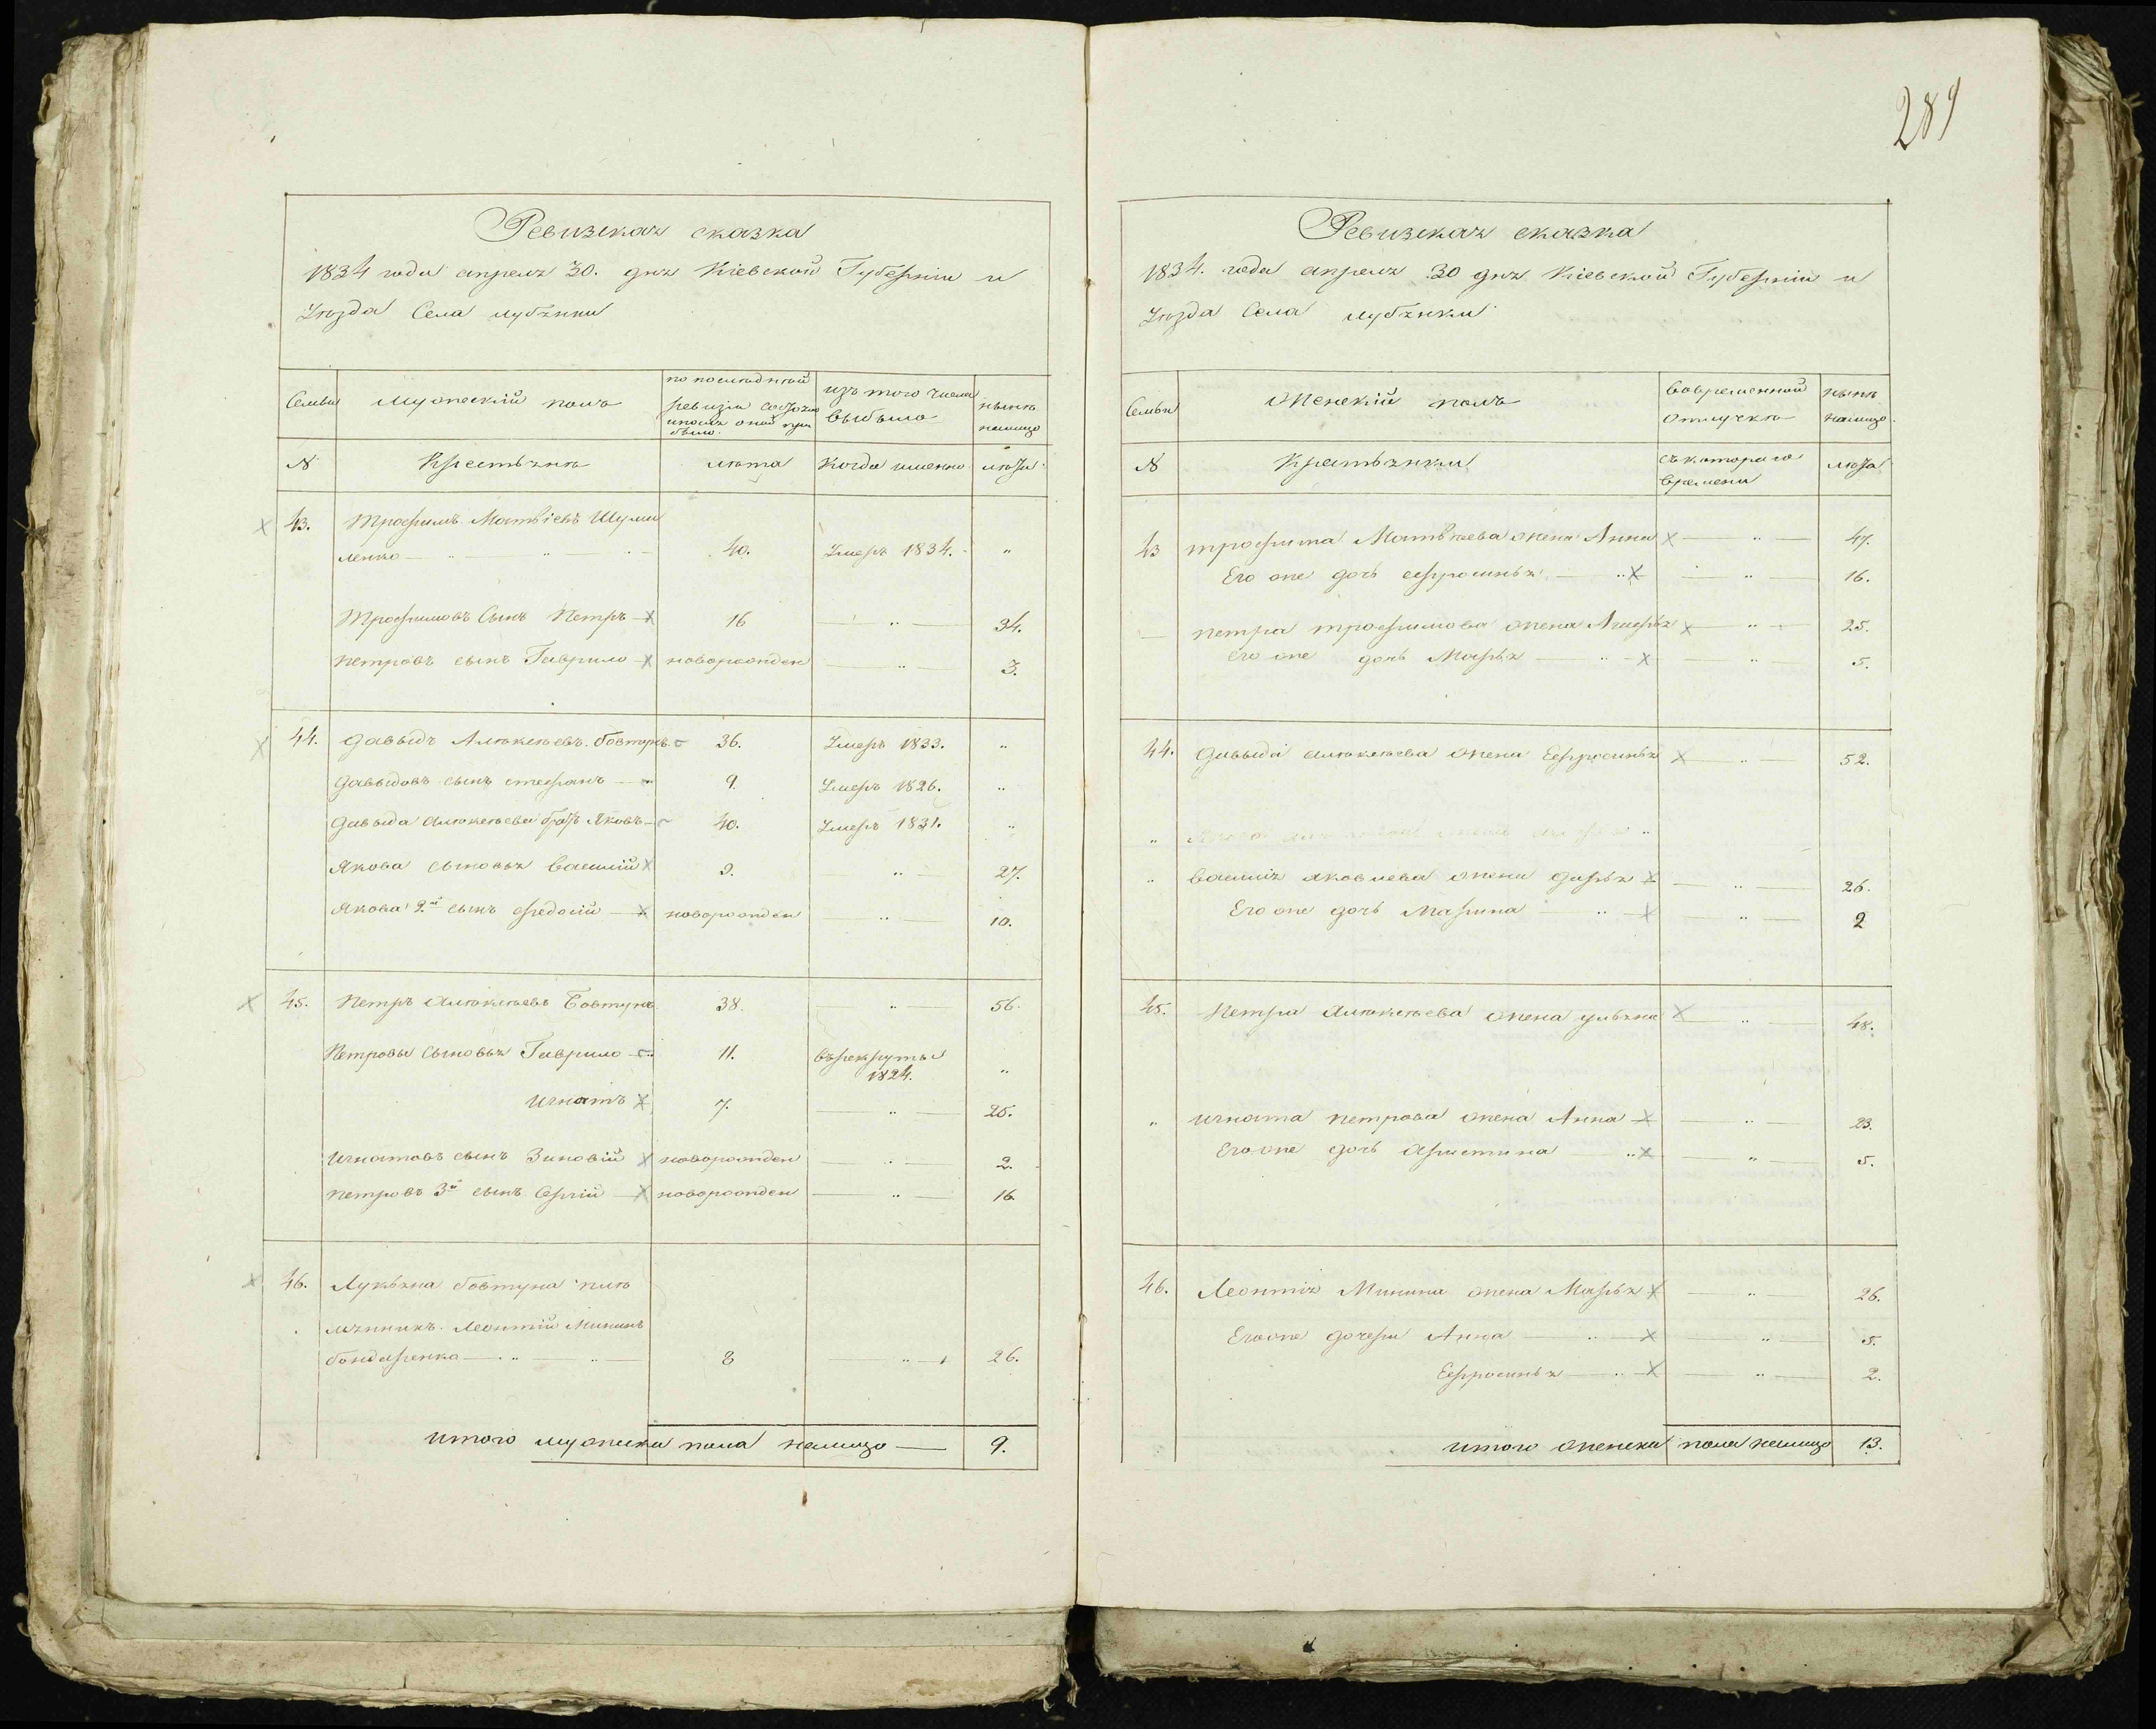 289
Ревизская сказка
1834 года апреля 30. дня Кіевской Губерніи и
Уѣзда Села лубянки
Семьи
мужескій полъ
по послѣдней
ревизіи состояло
и послѣ оной при
было.
изъ того числа
выбыло
нынѣ
налицо
№
Крестьяне
лѣта
Когда именно
лѣта
43. трофимъ Матвіевъ Шуми
ленко — „ — „ — 40. Умеръ 1834. „
трофимовъ Сынъ Петръ 16 — „ — 34.
петровъ сынъ Гаврило новорожден — „ — 3.
44. давыдъ Алексѣевъ бовтунъ 36. Умеръ 1833. „
давыдовъ сынъ стефанъ — 9. Умеръ 1826. „
давыда алексѣева братъ Яковъ 40. Умеръ 1831. „
Якова сыновья Василій 9. — „ — 27.
Якова 2й сынъ федосій — новорожден — „ — 10.
45. Петръ алексѣевъ Бовтунъ 38. — „ — 56.
Петровы сыновья Гаврило 11. въ рекруты
1824. „
игнатъ 7. — „ — 25.
игнатовъ сынъ Зиновій новорожден — „ — 2.
петровъ 3й сынъ Сергій — новорожден — „ — 16.
46. Лукьяна бовтуна пле
мянникъ Леонтій Мининъ
бондаренко — „ — „ — 8 „ 26.
итого мужеска пола налицо — 9.
Ревизская сказка
1834. года апреля 30 дня Кіевской Губерніи и
Уѣзда Села лубянки
Семьи
женскій полъ
Вовременной
отлучкѣ
нынѣ
налицо.
№
Крестьянки
съ котораго
времени
лѣта
43 трофима Матвѣева жена Анна — „ — 47.
Его же дочь ефросинья — „ — „ 16.
петра трофимова жена Агафья — „ — 25.
его же дочь Марья — „ — „ — 5.
44. давыда алексѣева жена Ефросинья — „ — 52.
„
„ василія яковлева жена дарья — „ — 26.
Его же дочь Марина — „ — „ — 2
45. Петра алексѣева жена ульяна — „ — 48.
„ игната петрова жена Анна — „ — 23.
Его же дочь христина — „ — „ — 5.
46. Леонтія Минина жена Марья — „ — 26.
Его же дочери Анна — „ — „ — 5.
Ефросинья — „ — „ — 2.
итого женска пола налицо 13.